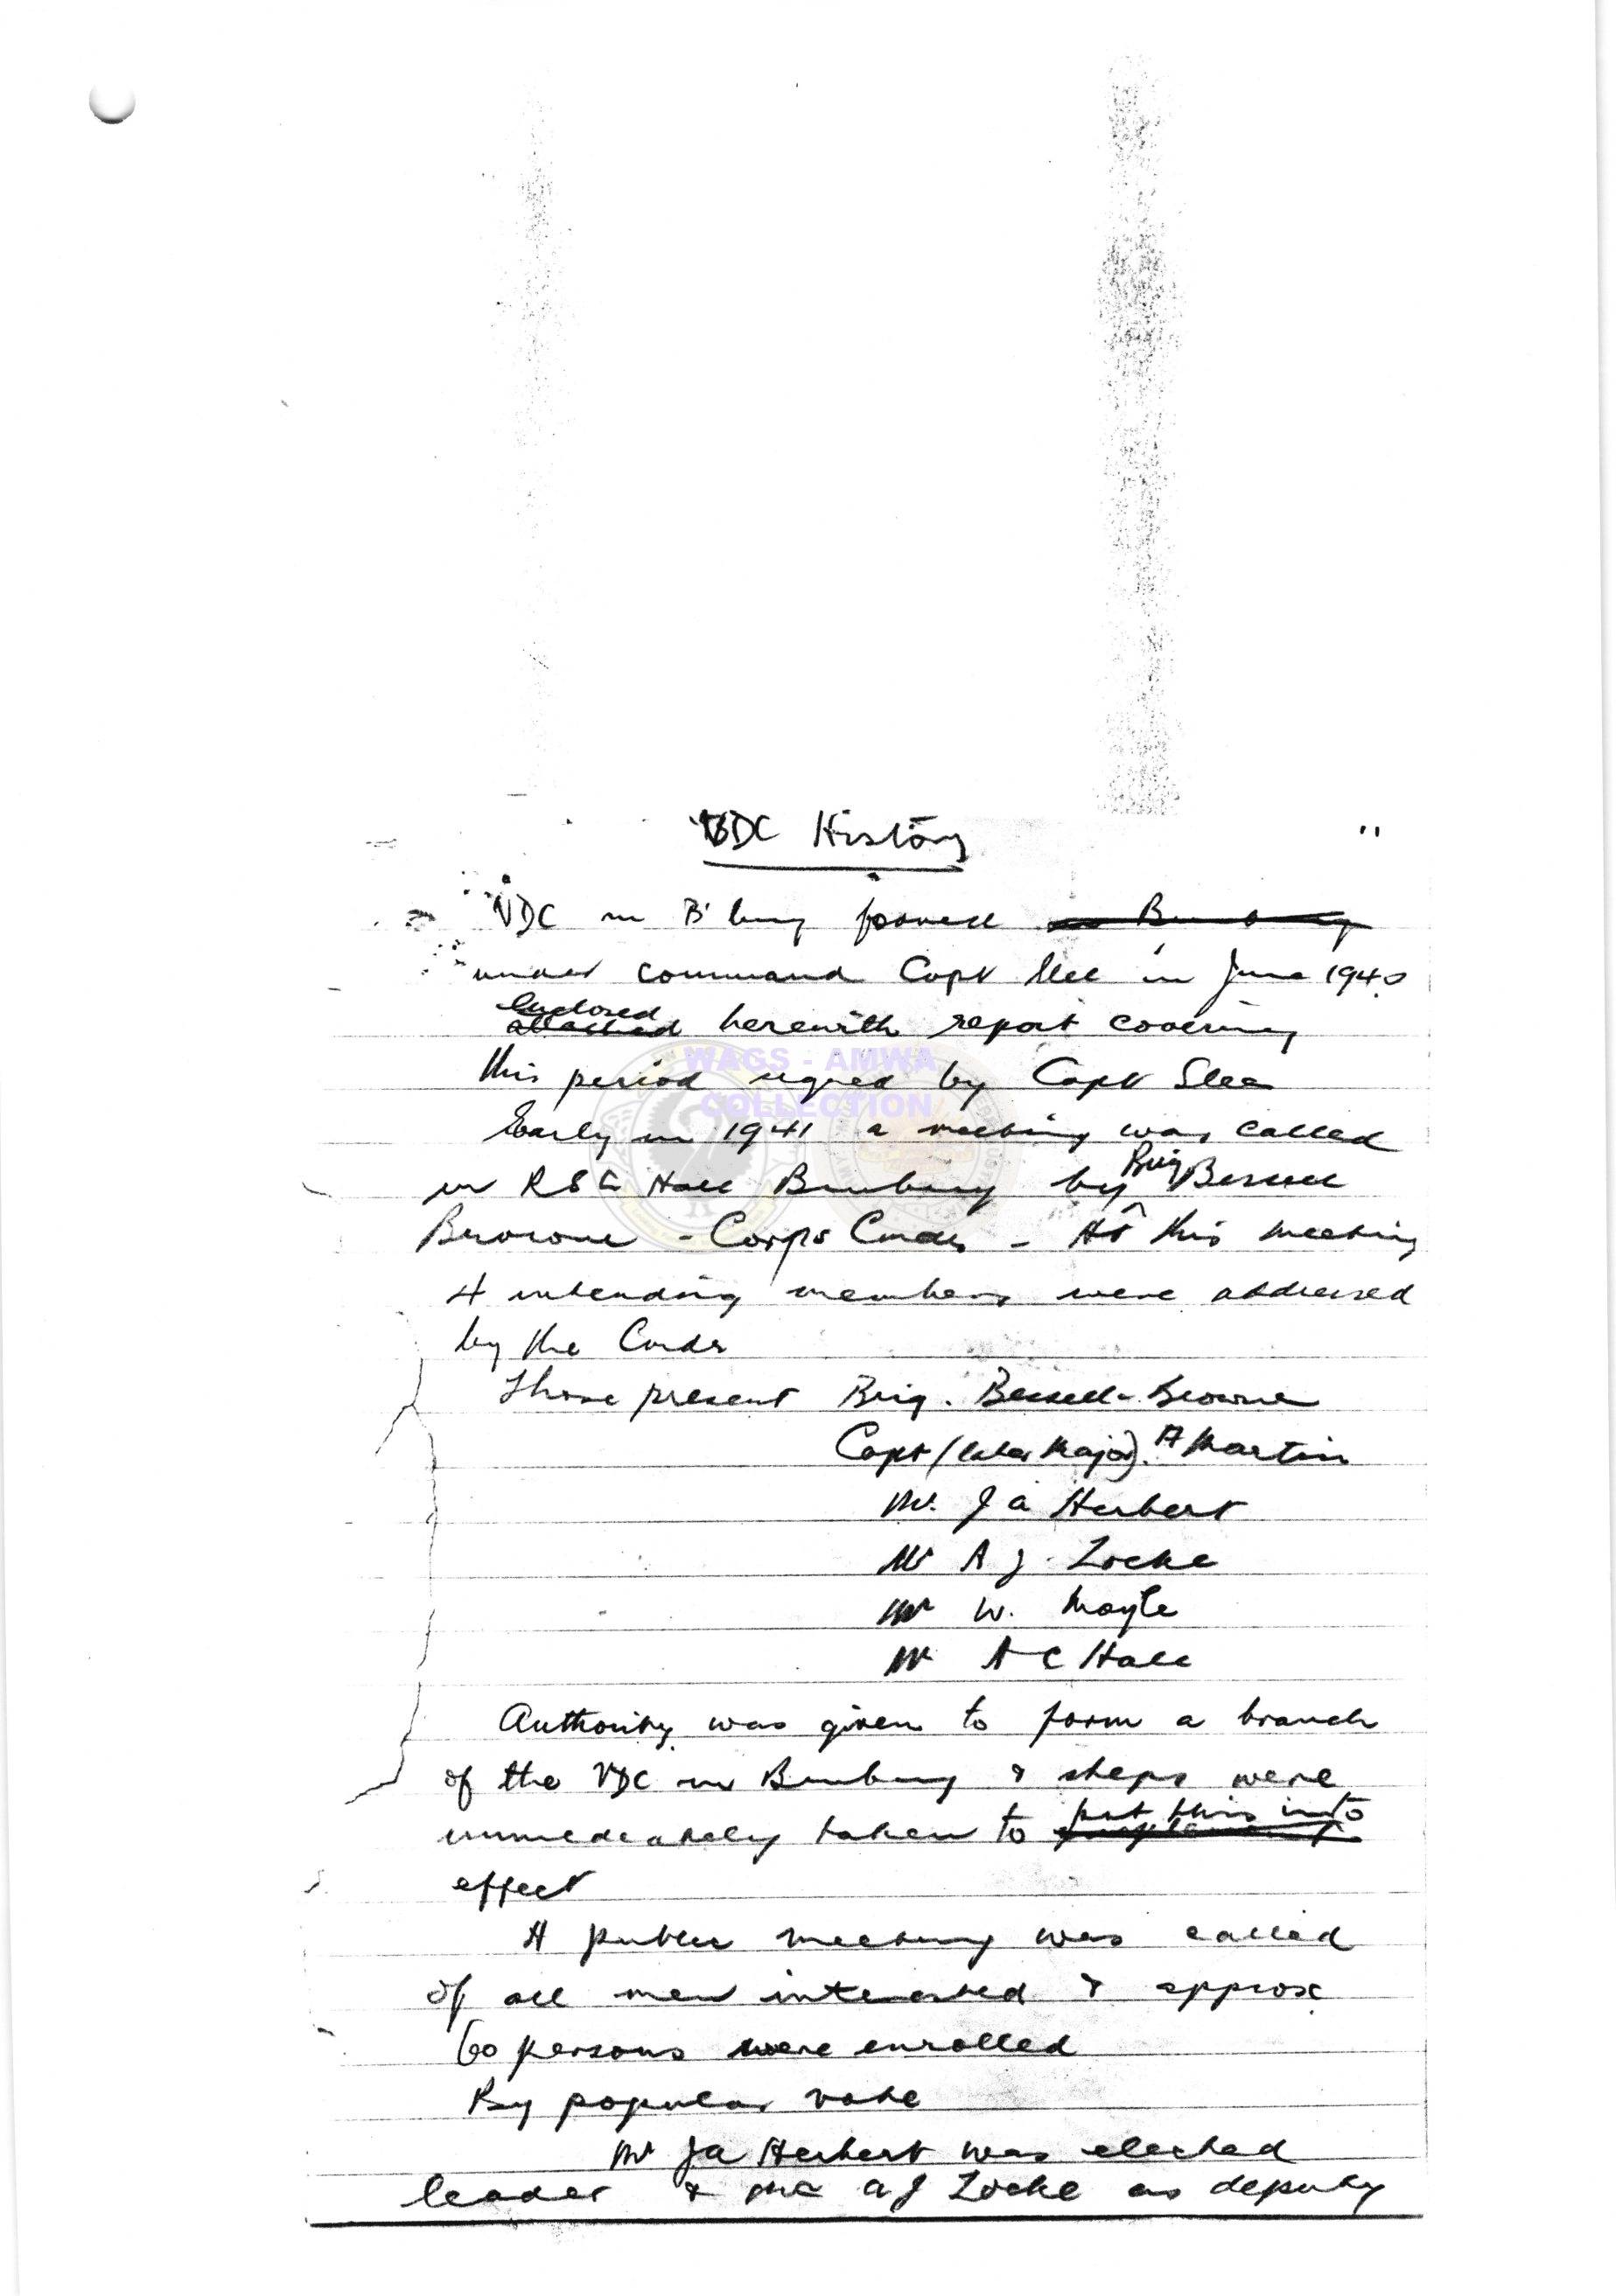 VDC History
VDC in B'bury formed in Bunbury
under command Capt Slee in June 1940
enclosed
attached herewith report covering
this period signed by Capt Slee
WAGS - AMWA
COLLECTION
Early in 1941 a meeting was called
in RSL Hall Bunbury by Brig Bessell
Browne - Corps Cmdr - At this meeting
4 intending members were addressed
by the Cmdr
Those present Brig. Bessell-Browne
Capt (later Major). A Martin
Mr. J A Herbert
Mr A J. Locke
Mr W. Moyle
Mr A C Hall
Authority was given to form a branch
of the VDC in Bunbury & steps were
immediately taken to put this into
effect
A public meeting was called
of all men interested & approx
60 persons were enrolled
By popular vote
Mr J A Herbert was elected
leader & Mr A J Locke as deputy